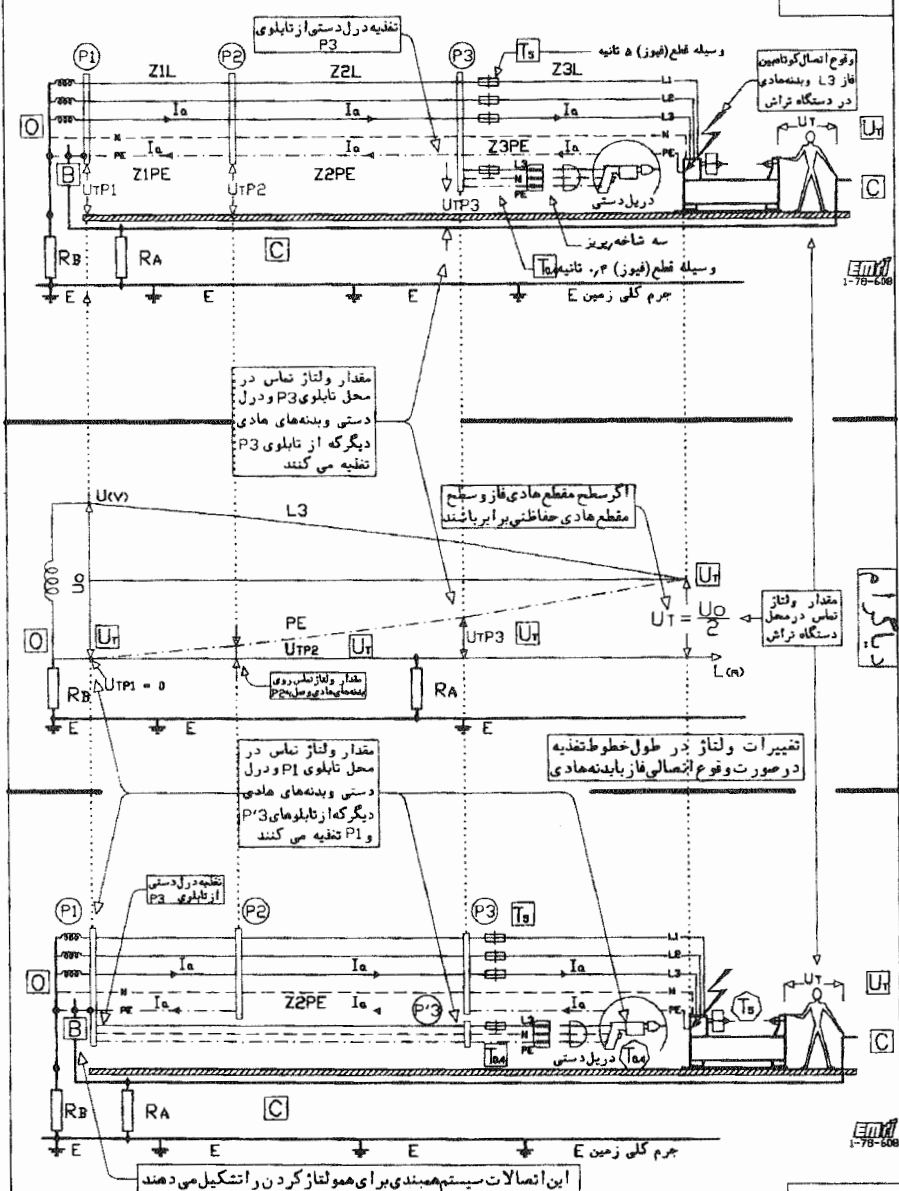 تغذیه درل دستی از تابلوی
P3
P1
P2
P3
T5
وسیله قطع (فیوز) ۵ ثانیه
وقوع اتصال کوتاه بین
فاز L3 و بدنه هادی
در دستگاه تراش
Z1L
Z2L
Z3L
L1
L2
L3
Ia
Ia
Ia
UT
UT
O
N
PE
Ia
Ia
Z3PE
Ia
PE
B
Z1PE
Z2PE
L3
N
PE
C
UTP1
UTP2
UTP3
دریل دستی
سه شاخه پریز
RB
RA
C
وسیله قطع (فیوز) ۰٫۴ ثانیه
T0.4
EMRI
1-78-608
E
E
E
E جرم کلی زمین
مقدار ولتاژ تماس در
محل تابلوی P3 و درل
دستی و بدنه های هادی
دیگر که از تابلوی P3
تغذیه می کنند
U(V)
L3
اگر سطح مقطع هادی فاز و سطح
مقطع هادی حفاظتی برابر باشند
UT
U0
UT = U0/2
مقدار ولتاژ
تماس در محل
دستگاه تراش
دیاگرام
PE
O
UT
UTP2
UT
UTP3
UT
L(m)
RB
UTP1 = 0
مقدار ولتاژ تماس روی
بدنه های هادی وصل به P2
RA
E
E
تغییرات ولتاژ در طول خطوط تغذیه
در صورت وقوع اتصالی فاز با بدنه هادی
مقدار ولتاژ تماس در
محل تابلوی P1 و درل
دستی و بدنه های هادی
دیگر که از تابلوهای P'3
و P1 تغذیه می کنند
تغذیه درل دستی
از تابلوی P3
P1
P2
P3
T5
L1
L2
L3
Ia
Ia
Ia
UT
UT
O
N
PE
Ia
Z2PE
Ia
P'3
Ia
N
PE
T5
B
L3
N
PE
C
T0.4
دریل دستی
T0.4
RB
RA
C
EMRI
1-78-608
E
E
E
E جرم کلی زمین
این اتصالات سیستم همبندی برای همولتاژ کردن را تشکیل می دهند